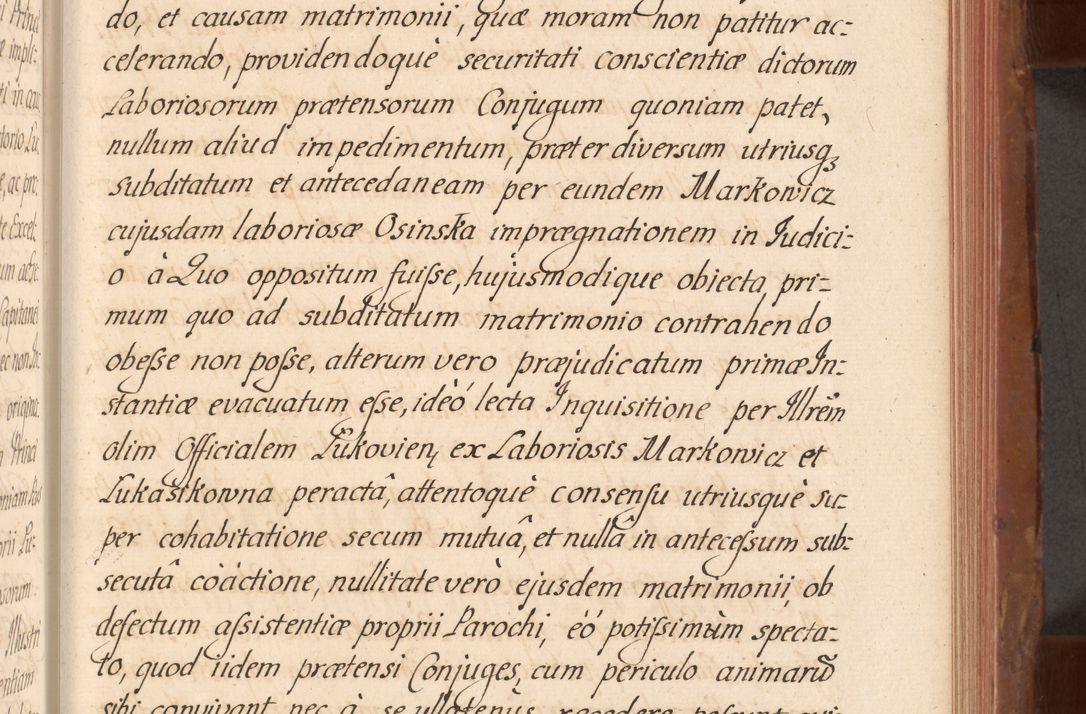 do, et causam matrimonii, quæ moram non patitur ac:
celerando, providendoquè securitati conscientiæ dictorum
Laboriosorum prætensorum Conjugum quoniam patet,
nullum aliud impedimentum, præter diversum utriusqȝ
subditatum et antecedaneam per eundem Markowicz
cujusdam laboriosæ Osinska imprægnationem in Judici:
o à Quo oppositum fuiſse, hujusmodique obiecta, pri:
mum quo ad subditatum matrimonio contrahendo
obeſse non poſse, alterum vero præjudicatum primæ In:
stantiæ evacuatum eſse, ideó lecta Inquisitione per Illrẽm
olim Officialem Łukovien, ex Laboriosis Markowicz et
Lukasikowna peractâ, attentoquè consensu utriusquè su:
per cohabitatione secum mutuâ, et nullâ in anteceſsum sub:
secutâ coàctione, nullitate verò ejusdem matrimonii, ob
defectum aſsistentiæ proprii Parochi, éó potiſsimùm specta:
to, quod iidem prætensi Conjuges, cum periculo animarũ
sibi convivant nec à se ullatenùs recedere